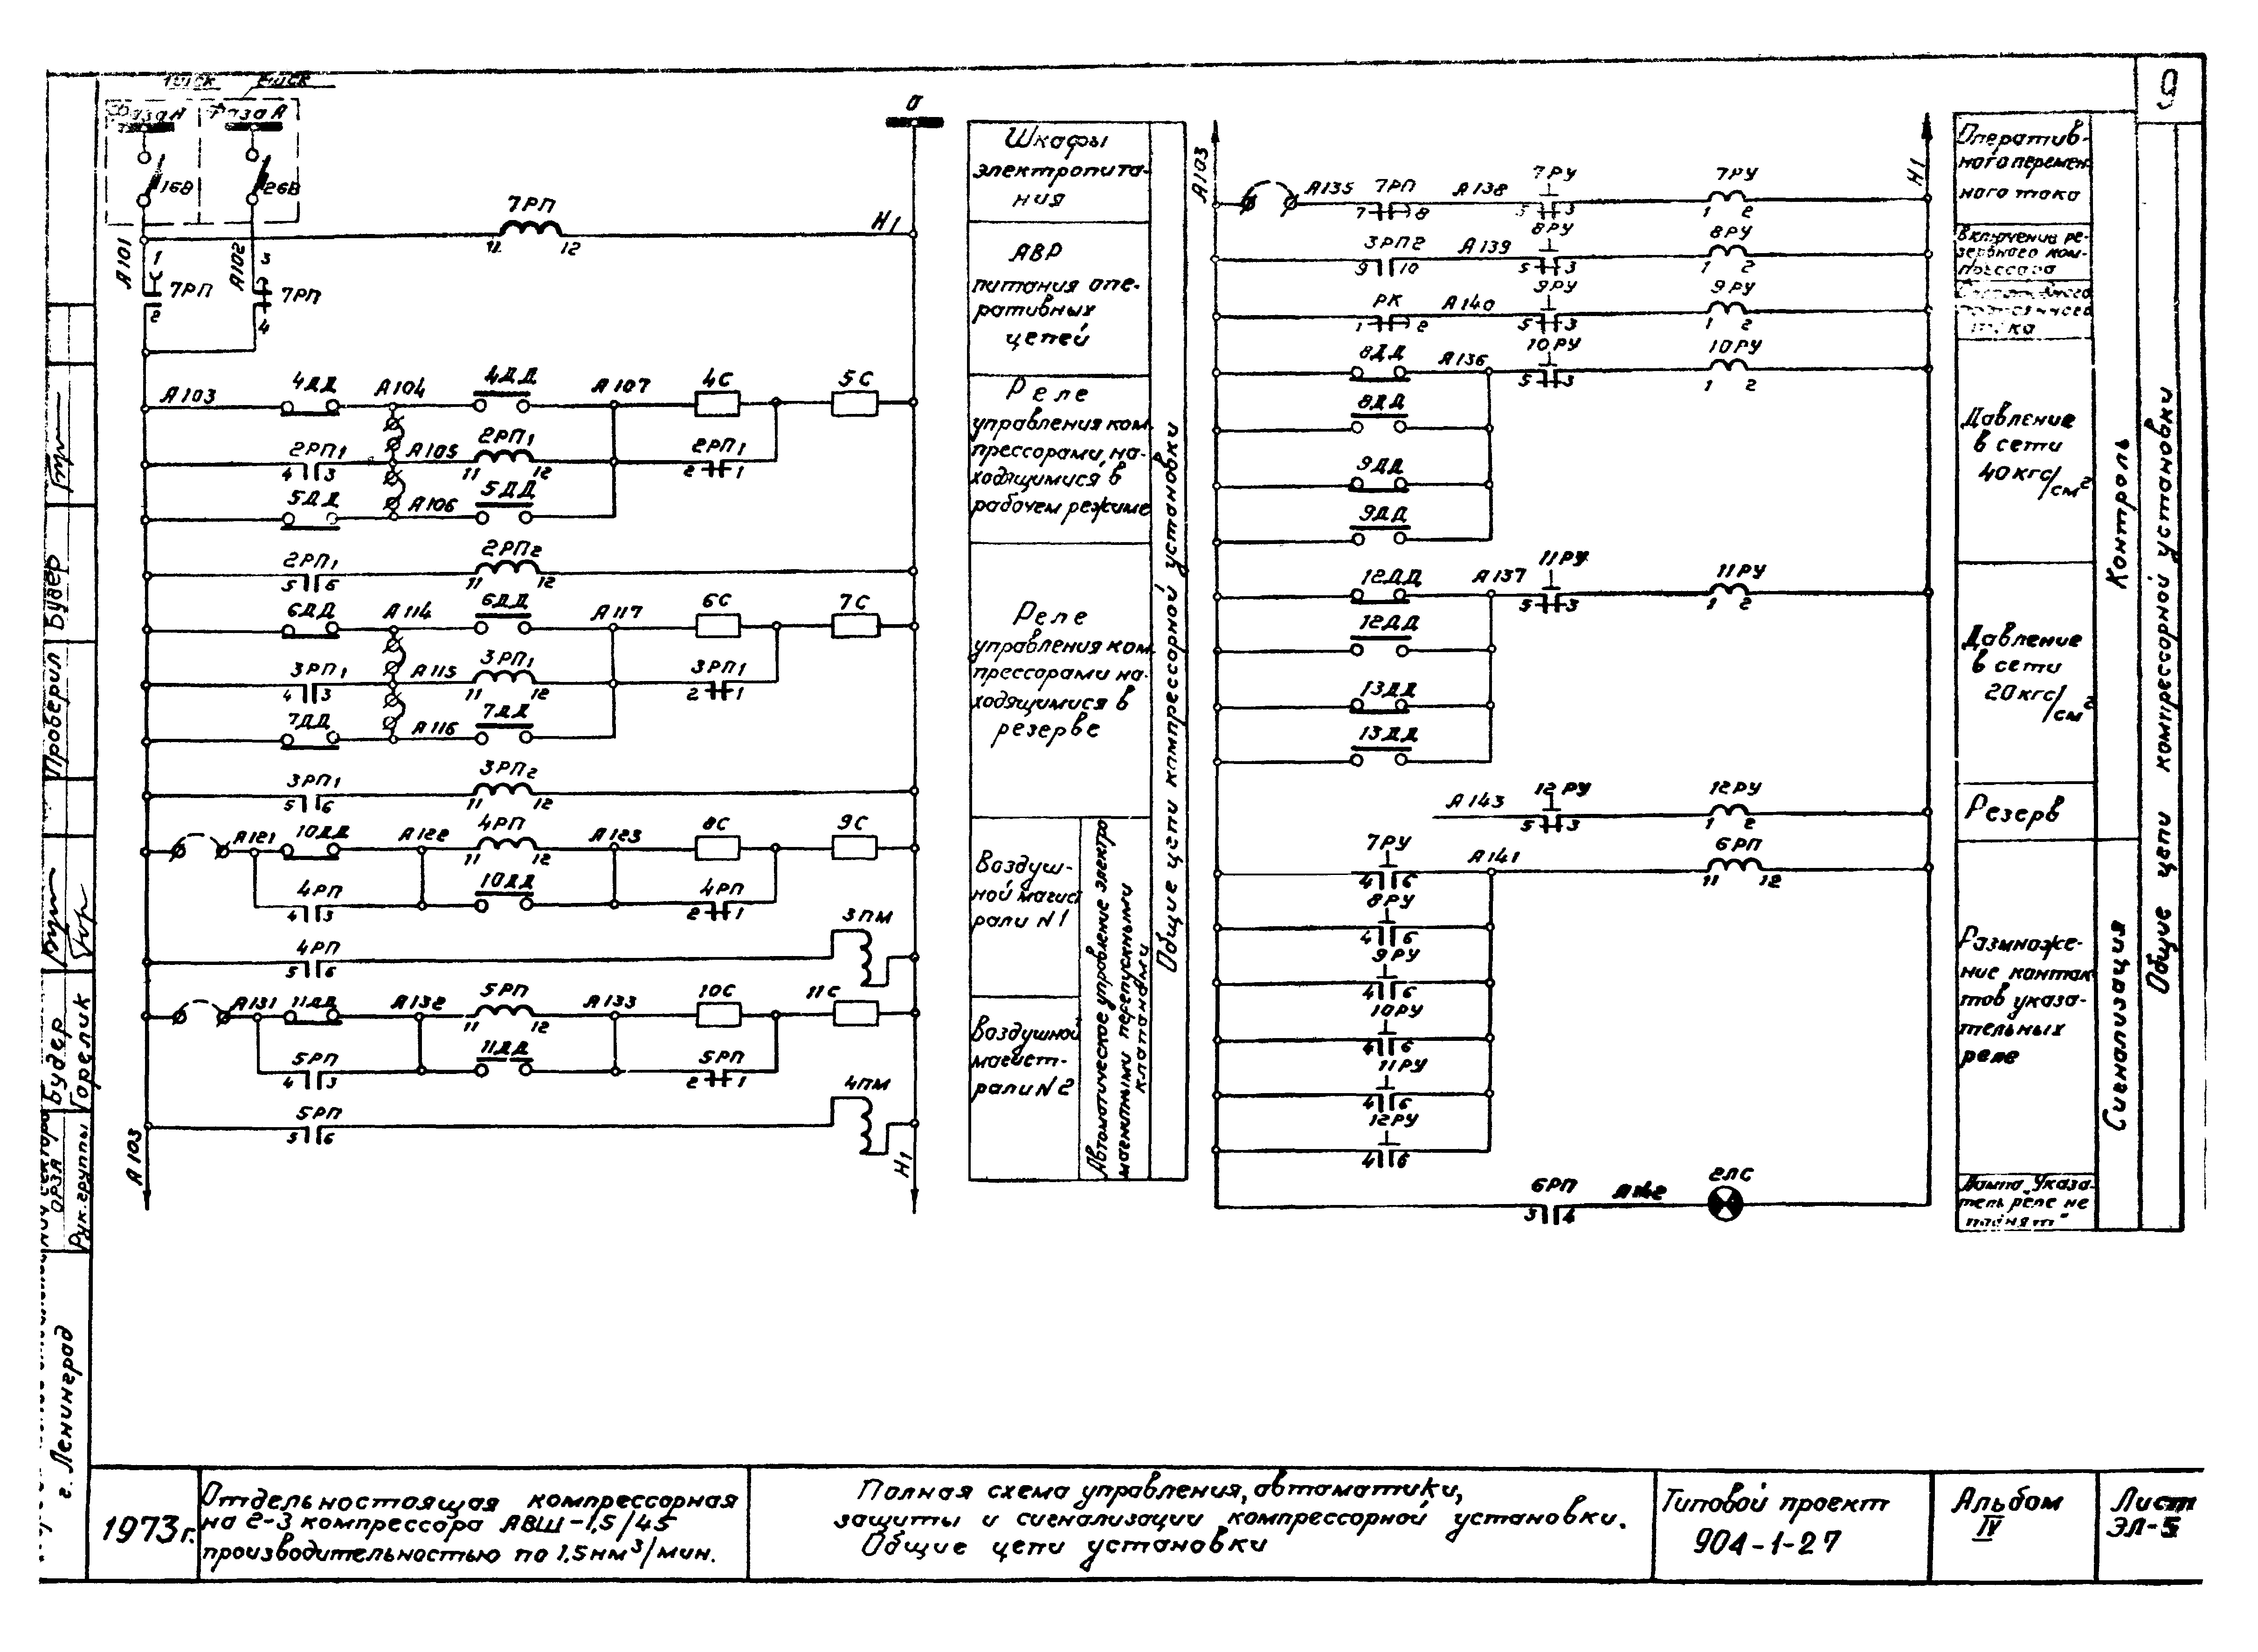 9
Фаза А
Фаза А
1бВ
2бВ
0
7РП
11
12
Н1
А101
А102
1
3
7РП
7РП
2
4
А103
4ДД
А104
4ДД
А107
4С
5С
2РП1
4
3
А105
2РП1
11
12
2РП1
2
1
5ДД
А106
5ДД
2РП1
5
6
2РП2
11
12
6ДД
А114
6ДД
А117
6С
7С
3РП1
4
3
А115
3РП1
11
12
3РП1
2
1
7ДД
А116
7ДД
3РП1
5
6
3РП2
11
12
А121
10ДД
А122
4РП
11
12
А123
8С
9С
4РП
4
3
10ДД
4РП
2
1
4РП
5
6
3ПМ
А131
11ДД
А132
5РП
11
12
А133
10С
11С
5РП
4
3
11ДД
5РП
2
1
5РП
5
6
4ПМ
А103
Н1
Шкафы
электропита-
ния
АВР
питания опе-
ративных
цепей
Реле
управления ком-
прессорами, на-
ходящимися в
рабочем режиме
Реле
управления ком-
прессорами на-
ходящимися в
резерве
Воздуш-
ной магист
рали N1
Воздушной
магист-
рали N2
Автоматическое управление электро
магнитными перепускными
клапанами
Общие цепи компрессорной установки
А103
Н1
А135
7РП
7
8
А138
7РУ
5
3
7РУ
1
2
3РП2
9
10
А139
8РУ
5
3
8РУ
1
2
РК
1
2
А140
9РУ
5
3
9РУ
1
2
8ДД
А136
10РУ
5
3
10РУ
1
2
8ДД
9ДД
9ДД
12ДД
А137
11РУ
5
3
11РУ
1
2
12ДД
13ДД
13ДД
А143
12РУ
5
3
12РУ
1
2
7РУ
4
6
А141
6РП
11
12
8РУ
4
6
9РУ
4
6
10РУ
4
6
11РУ
4
6
12РУ
4
6
6РП
3
4
А142
2ЛС
Оператив-
ного перемен-
ного тока
Включения ре-
зервного ком-
прессора
тока
Давление
в сети
40кгс/см²
Давление
в сети
20кгс/см²
Резерв
Размноже-
ние контак
тов указа-
тельных
реле
Лампа „Указа-
тель реле не
поднят"
Контроль
Сигнализация
Общие цепи компрессорной установки
Проверил
Бувер
Будер
Горелик
ОРЗА
Рук. группы
г. Ленинград
1973г.
Отдельностоящая компрессорная
на 2-3 компрессора АВШ-1,5/45
производительностью по 1,5нм³/мин.
Полная схема управления, автоматики,
защиты и сигнализации компрессорной установки.
Общие цепи установки
Типовой проект
904-1-27
Альбом
IV
Лист
ЭЛ-5